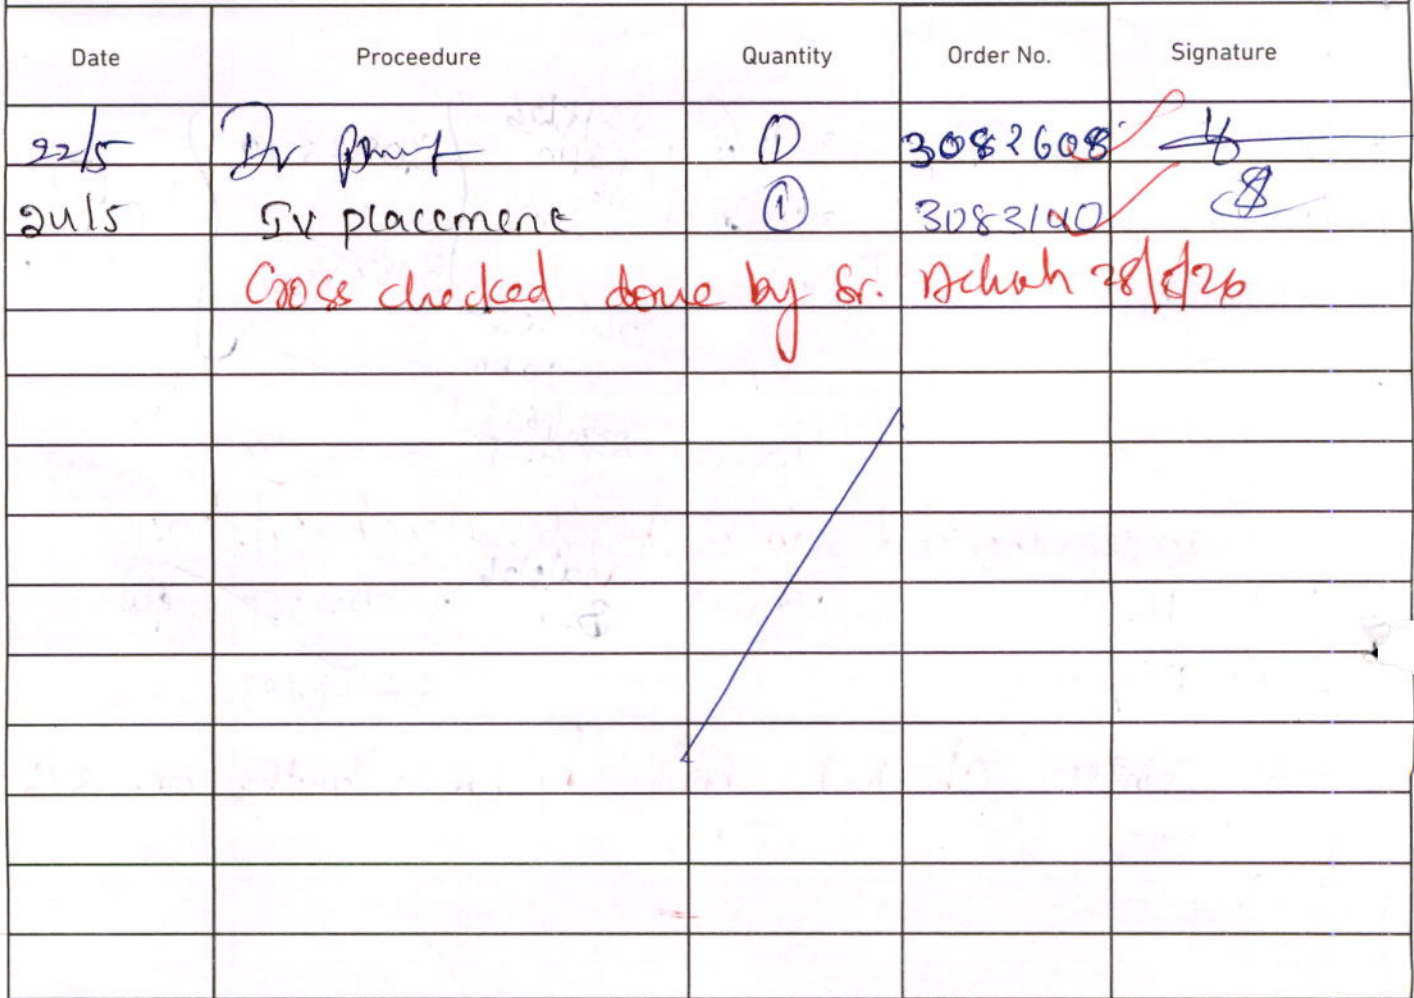 Date Proceedure Quantity Order No. Signature
22/5 Iv 1 3082608
24/5 Iv placement 1 3083140
Cross checked done by Sr. 28/5/26